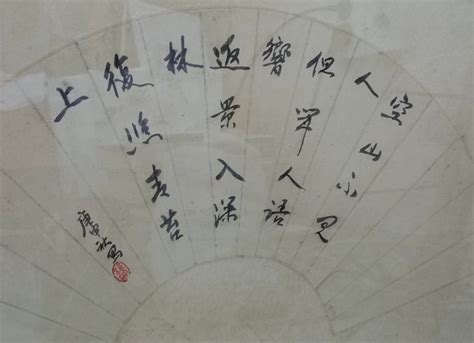 空山不見
人
但聞人語
響
返景入深
林
復照青苔
上
庚申秋